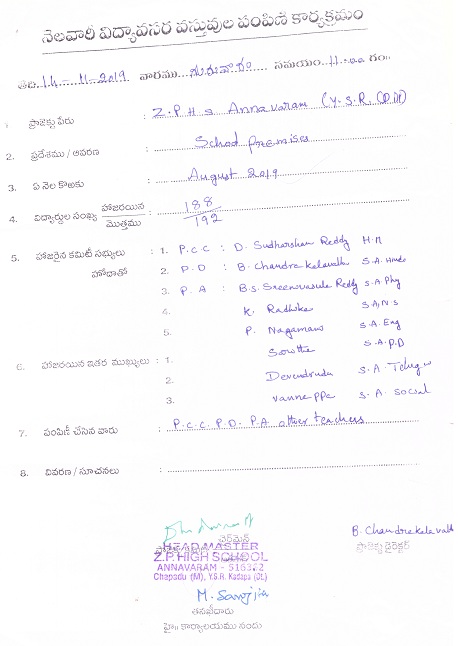 నెలవారీ విద్యావసర వస్తువుల పంపిణి కార్యక్రమం
తేది: 14-11-2019 వారము గురువారం సమయం 11:00 గం॥
1. ప్రాజెక్టు పేరు : Z.P.H.S Annavaram (Y.S.R (Dt))
2. ప్రదేశము / ఆవరణ : School premises
3. ఏ నెల కొఱకు : August 2019
4. విద్యార్థుల సంఖ్య హాజరయిన / మొత్తము : 188 / 192
5. హాజరైన కమిటీ సభ్యులు : 1. P.C.C : D. Sudharshan Reddy H.M
హోదాతో 2. P.D : B. Chandrakalavathi S.A. Hindi
3. P.A : B.S. Sreenivasula Reddy S.A Phy
4. K. Radhika S.A, N.S
5. P. Nagamani S.A. Eng
6. హాజరయిన ఇతర ముఖ్యులు : 1. S.A. P.D
2. Devendrudu S.A. Telugu
3. Vannappa S.A. Social
7. పంపిణీ చేసిన వారు : P.C.C, P.D, P.A other teachers
8. వివరణ / సూచనలు :
చైర్మైన్
HEAD MASTER
Z.P. HIGH SCHOOL
ANNAVARAM - 516362
Chapadu (M), Y.S.R. Kadapa (Dt.)
B. Chandrakalavathi
ప్రాజెక్టు డైరెక్టర్
తనఖీదారు
హై॥ కార్యాలయము నందు